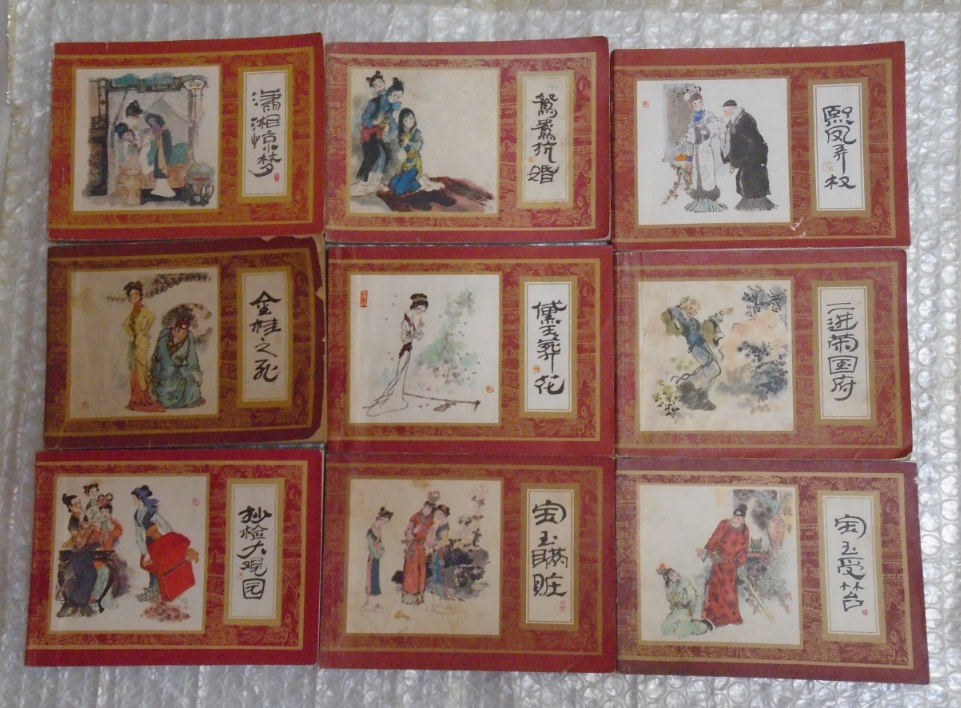 潇湘惊梦
鸳鸯抗婚
熙凤弄权
金桂之死
黛玉葬花
二进荣国府
抄检大观园
宝玉瞒赃
宝玉受笞